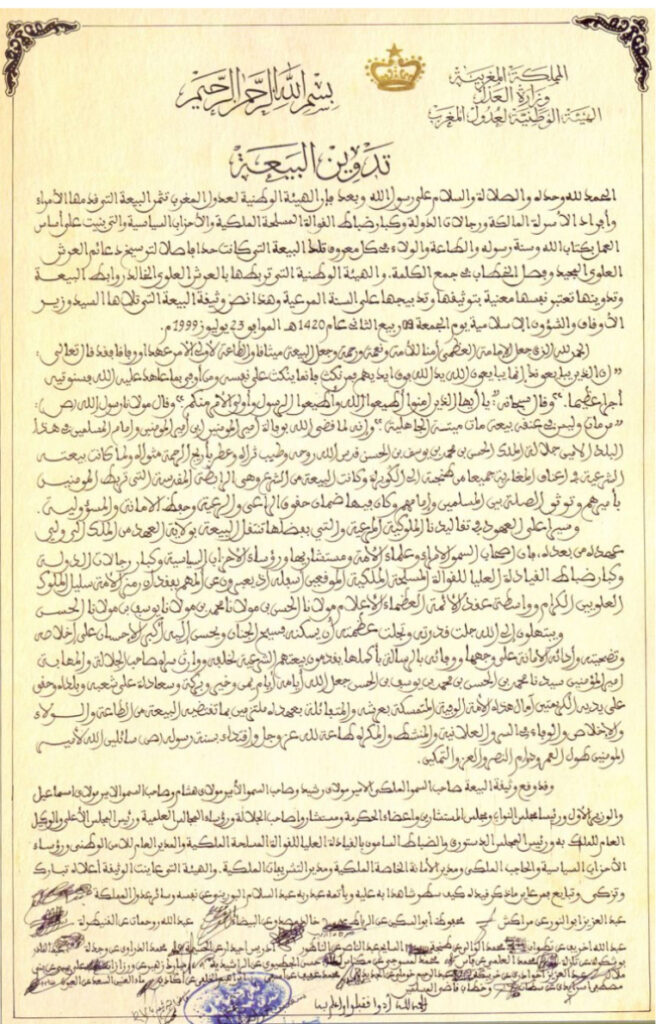 المملكة المغربية
وزارة العدل
الهيئة الوطنية لعدول المغرب
بسم الله الرحمن الرحيم
تدوين البيعة
الحمد لله وحده والصلاة والسلام على رسول الله وبعد فإن الهيئة الوطنية لعدول المغرب تثمن البيعة التي قدمها الأمراء
وأفراد الأسرة المالكة ورجالات الدولة وكبار ضباط القوات المسلحة الملكية والأحزاب السياسية والتي بنيت على أساس
العمل بكتاب الله وسنة رسوله والطاعة والولاء في كل معروف تلك البيعة التي كانت حدا فاصلا لترسيخ دعائم العرش
العلوي المجيد وفصل الخطاب في جمع الكلمة. والهيئة الوطنية التي تربطها بالعرش العلوي الخالد رابطة البيعة
وتدوينها تعتبر نفسها معنية بتوثيقها وتدبيجها على السنة المرعية وهذا نص وثيقة البيعة التي تلاها السيد وزير
الأوقاف والشؤون الإسلامية يوم الجمعة 09 ربيع الثاني عام 1420هـ الموافق 23 يوليوز 1999م.
الحمد لله الذي جعل الإمامة العظمى أمنا للأمة ونعمة ورحمة وجعل البيعة ميثاقا والطاعة لأولي الأمر عهدا ووفاقا فقد قال تعالى:
"إن الذين يبايعونك إنما يبايعون الله يد الله فوق أيديهم فمن نكث فإنما ينكث على نفسه ومن أوفى بما عاهد عليه الله فسنوتيه
أجرا عظيما." وقال سبحانه: "يا أيها الذين آمنوا أطيعوا الله وأطيعوا الرسول وأولي الأمر منكم" وقال مولانا رسول الله (ص):
"من مات وليس في عنقه بيعة مات ميتة الجاهلية" وإنه لما قضى الله بوفاة أمير المومنين ابن أمير المومنين وإمام المسلمين في هذا
البلد الأمين جلالة الملك الحسن بن محمد بن يوسف بن الحسن قدس الله روحه وطيب ثراه وعطر بأريج الرحمة مثواه ولما كانت بيعته
الشرعية في أعناق المغاربة جميعا من طنجة إلى الكويرة وكانت البيعة من الشرع وهي الرابطة المقدسة التي تربط المومنين
بأميرهم وتوثق الصلة بين المسلمين وإمامهم وكان فيها ضمان حقوق الراعي والرعية وحفظ الأمانة والمسؤولية.
وسيرا على المعهود في تقاليدنا الملوكية المرعية والتي بفضلها تنتقل البيعة بولاية العهد من الملك إلى ولي
عهده من بعده، فإن أصحاب السمو الأمراء وعلماء الأمة ومستشاريها ورؤساء الأحزاب السياسية وكبار رجالات الدولة
وكبار ضباط القيادة العليا للقوات المسلحة الملكية الموقعين أسفله إذ يعبرون عن ألمهم بفقدان رمز الأمة سليل الملوك
العلويين الكرام وواسطة عقد الأئمة العظماء الأعلام مولانا الحسن بن مولانا محمد بن مولانا يوسف بن مولانا الحسن
ويبتهلون إلى الله جلت قدرته وتجلت عظمته أن يسكنه فسيح الجنان ويحسن إليه أكبر الإحسان على إخلاصه
وتضحيته وأدائه الأمانة على وجهها ووفائه بالرسالة بأكملها يقدمون بيعتهم الشرعية لخلفه ووارث سره صاحب الجلالة والمهابة
أمير المؤمنين سيدنا محمد بن الحسن بن محمد بن يوسف بن الحسن جعل الله أيامه أيام يمن وخير وبركة وسعادة على شعبه وبلاده وحقق
على يديه الكريمتين آمال هذه الأمة الوفية المتمسكة بعرشه والمتفائلة بعهده ملتزمين بما تقتضيه البيعة من الطاعة والولاء
والإخلاص والوفاء في السر والعلانية والمنشط والمكره طاعة لله عز وجل واقتداء بسنة رسوله (ص) سائلين الله لأمير
المومنين طول العمر ودوام النصر والعز والتمكين.
وقد وقع وثيقة البيعة صاحب السمو الملكي الأمير مولاي رشيد وصاحب السمو الأمير مولاي هشام وصاحب السمو الأمير مولاي اسماعيل
والوزير الأول ورئيسا مجلس النواب ومجلس المستشارين وأعضاء الحكومة ومستشارو صاحب الجلالة ورؤساء المجالس العلمية ورئيس المجلس الأعلى والوكيل
العام للملك به ورئيس المجلس الدستوري والضباط السامون بالقيادة العليا للقوات المسلحة الملكية والمدير العام للأمن الوطني ورؤساء
الأحزاب السياسية والحاجب الملكي ومدير الأمانة الخاصة الملكية ومدير التشريفات الملكية. والهيئة التي عاينت الوثيقة أعلاه تبارك
وتزكي وتبايع فمن عاين ما ذكر قيده كيف سطر شاهدا به عليه وبأتمه عبد ربه عبد السلام البوريني عن نفسه وسائر عدول المملكة
عبد العزيز أبو النور عن مراكش محفوظ أبو السكين عن الرباط خالد عن البيضاء عبد الله رحمان عن القنيطرة
عبد الله عن تطوان محمد عن طنجة عبد الناصر عن الناظور إدريس عن الحسيمة محمد عن وجدة
محمد العلمي عن فاس محمد عن مكناس حسن عن الراشدية زهير عن ورزازات
الحمد لله أديا فقبلا